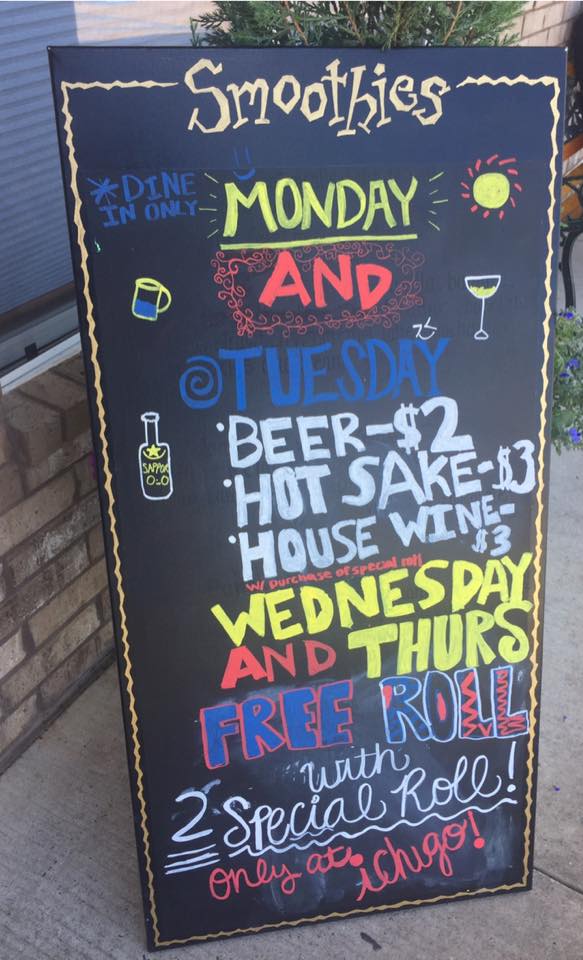 Smoothies
*DINE
IN ONLY
MONDAY
AND
TUESDAY
·BEER-$2
·HOT SAKE-$3
·HOUSE WINE-
$3
W/ purchase of special roll
WEDNESDAY
AND THURS
FREE ROLL
with
2 Special Roll!
only at ichigo!
SAPPOR